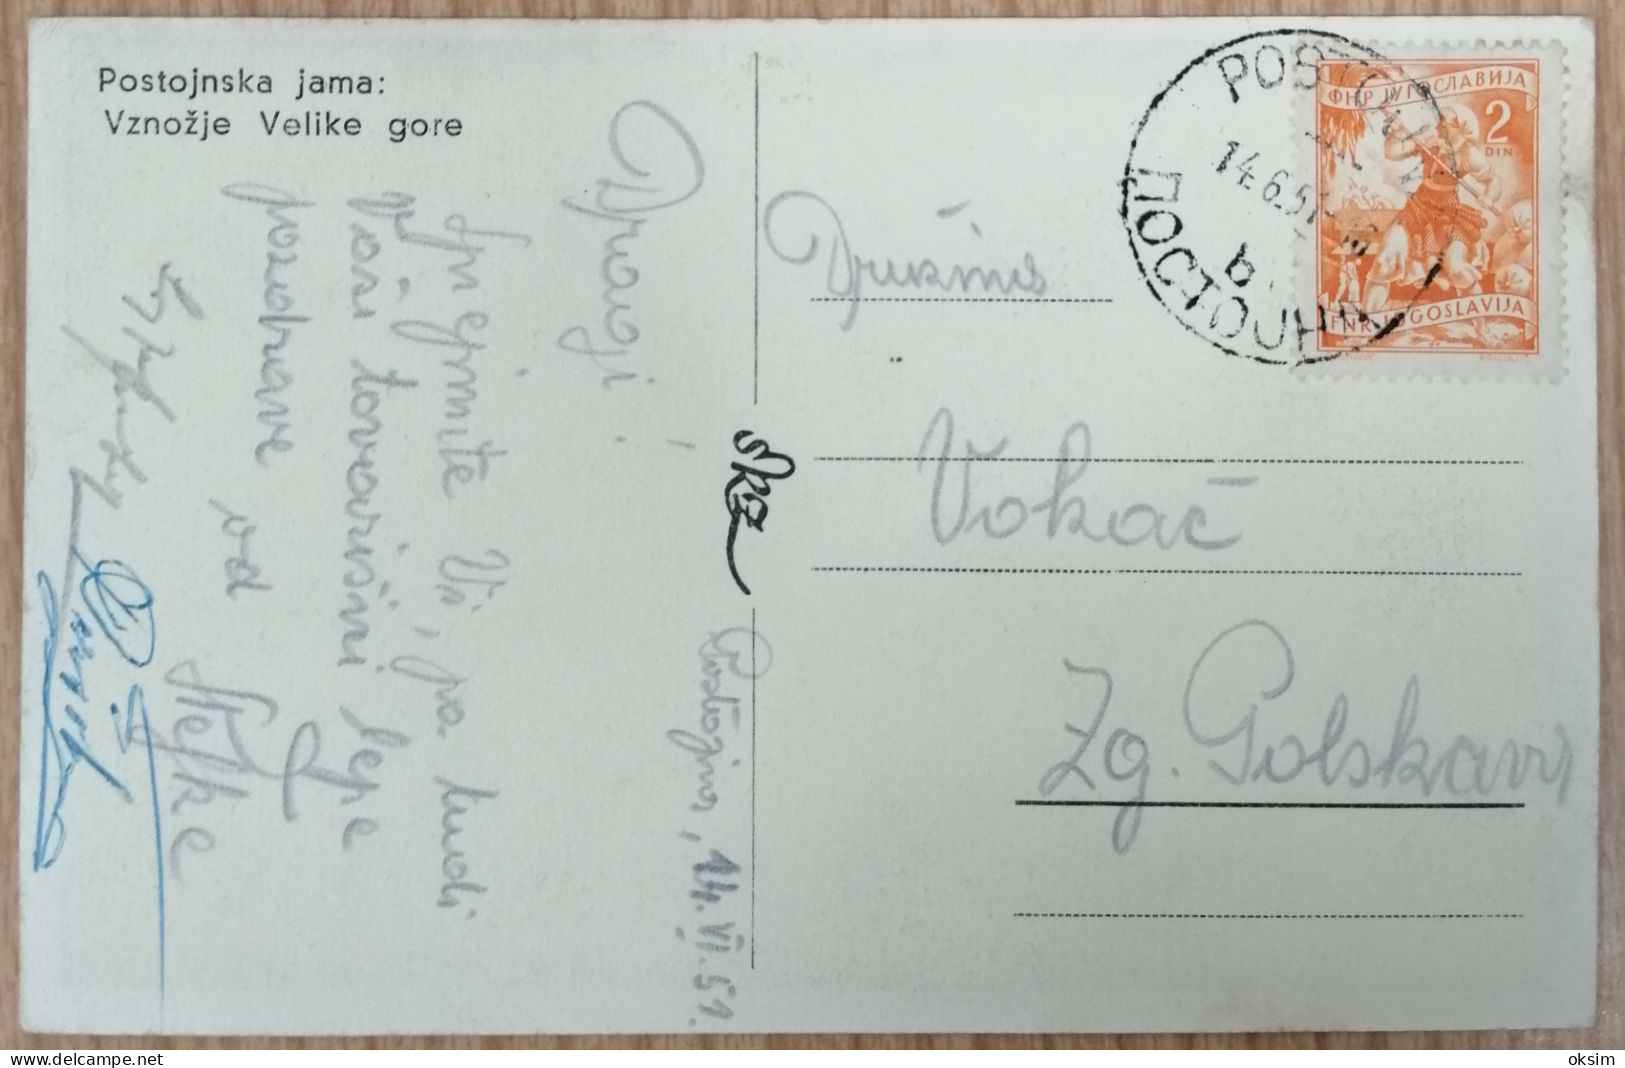 Postojnska jama:
Vznožje Velike gore
Postojna, 14. VI. 51.
Dragi!
Sprejmite Vi, pa tudi
Vaši tovarišni lepe
pozdrave od
Štefke
ska
Družina
Vokač
Zg. Polskava
POSTOJNA
14.6.51
b
ПОСТОЈНА
ФНР ЈУГОСЛАВИЈА
2
DIN
FNR JUGOSLAVIJA
oksim